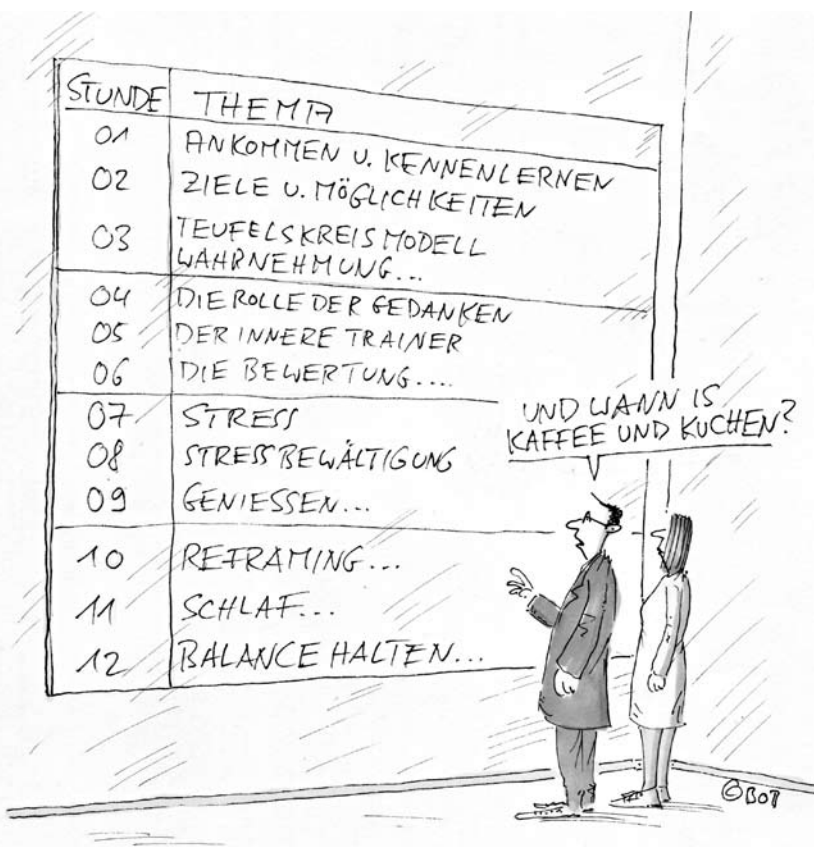 STUNDE THEMA
01 ANKOMMEN U. KENNENLERNEN
02 ZIELE U. MÖGLICHKEITEN
03 TEUFELSKREISMODELL
WAHRNEHMUNG...
04 DIE ROLLE DER GEDANKEN
05 DER INNERE TRAINER
06 DIE BEWERTUNG....
07 STRESS
08 STRESSBEWÄLTIGUNG
09 GENIESSEN...
10 REFRAMING...
11 SCHLAF...
12 BALANCE HALTEN...
UND WANN IS
KAFFEE UND KUCHEN?
©BOB